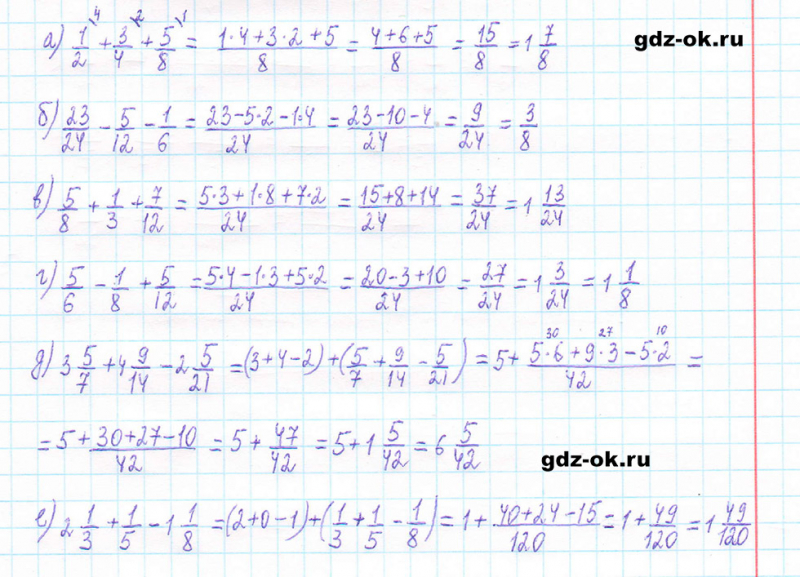 а) 1/2 + 3/4 + 5/8 = (1·4+3·2+5)/8 = (4+6+5)/8 = 15/8 = 1 7/8
gdz-ok.ru
б) 23/24 − 5/12 − 1/6 = (23−5·2−1·4)/24 = (23−10−4)/24 = 9/24 = 3/8
в) 5/8 + 1/3 + 7/12 = (5·3+1·8+7·2)/24 = (15+8+14)/24 = 37/24 = 1 13/24
г) 5/6 − 1/8 + 5/12 = (5·4−1·3+5·2)/24 = (20−3+10)/24 = 27/24 = 1 3/24 = 1 1/8
д) 3 5/7 + 4 9/14 − 2 5/21 = (3+4−2)+(5/7 + 9/14 − 5/21) = 5+ (5·6+9·3−5·2)/42 =
= 5+ (30+27−10)/42 = 5+ 47/42 = 5+1 5/42 = 6 5/42
gdz-ok.ru
е) 2 1/3 + 1/5 − 1 1/8 = (2+0−1)+(1/3 + 1/5 − 1/8) = 1+ (40+24−15)/120 = 1+ 49/120 = 1 49/120